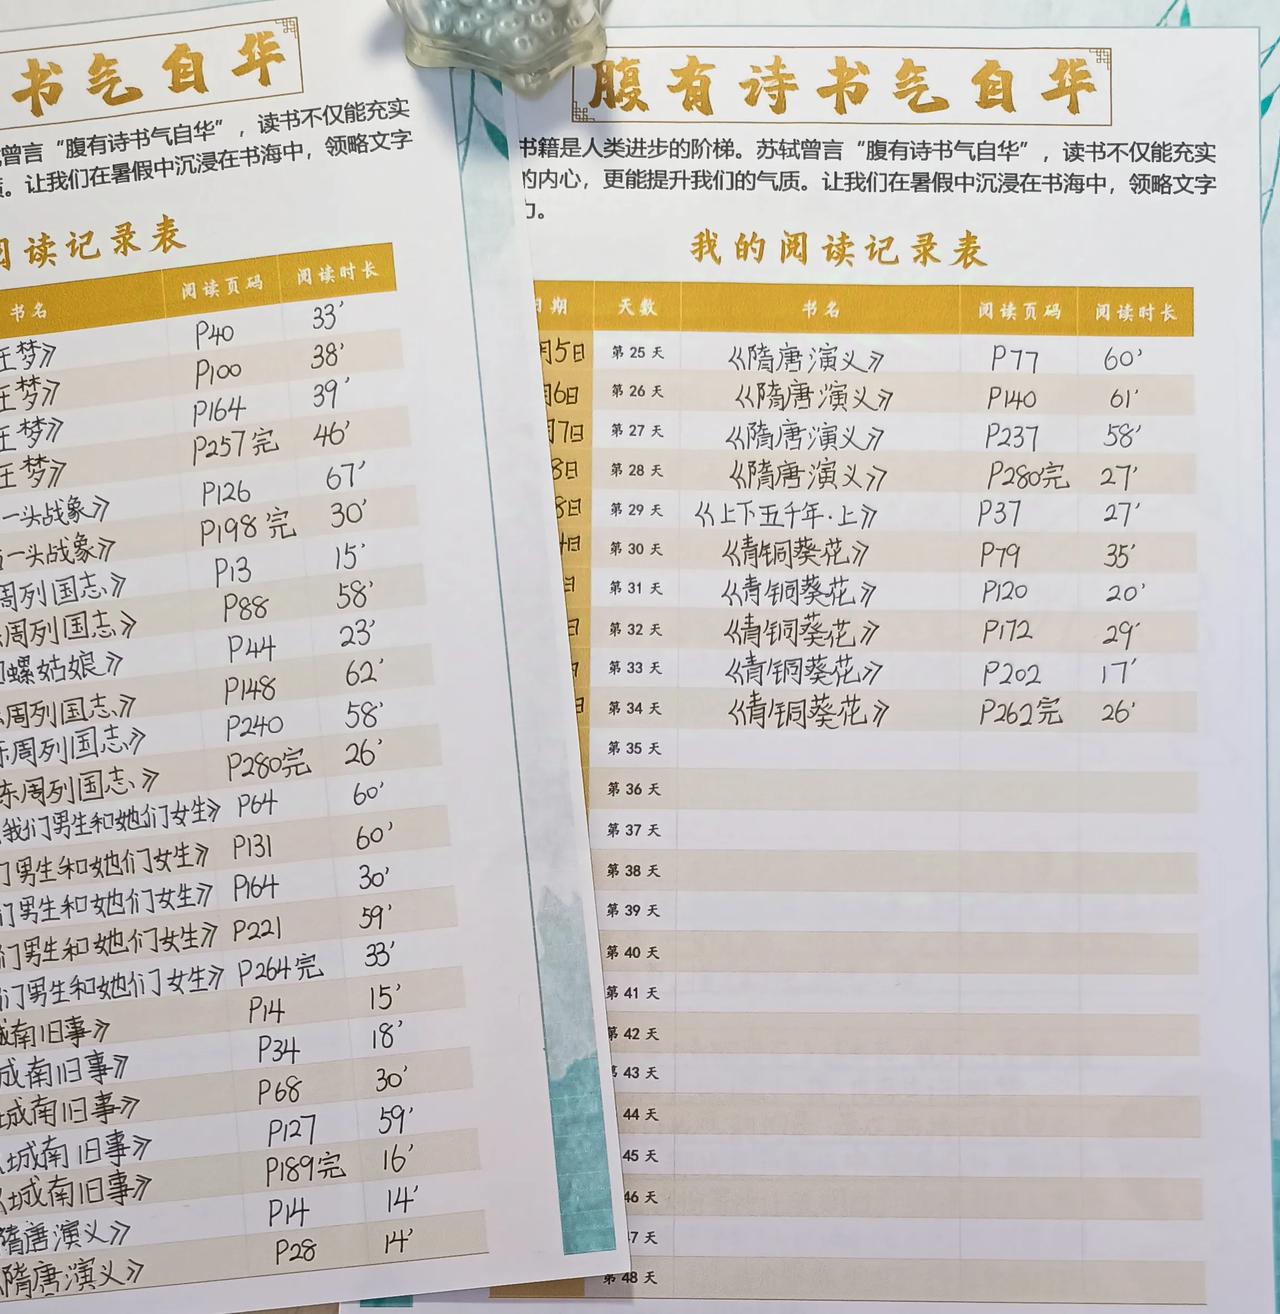 书气自华
曾言“腹有诗书气自华”，读书不仅能充实
。让我们在暑假中沉浸在书海中，领略文字
阅读记录表
书名 阅读页码 阅读时长
梦》 P40 33'
梦》 P100 38'
梦》 P164 39'
梦》 P257完 46'
一头战象》 P126 67'
一头战象》 P198完 30'
周列国志》 P13 15'
周列国志》 P88 58'
螺姑娘》 P44 23'
周列国志》 P148 62'
东周列国志》 P240 58'
东周列国志》 P280完 26'
我们男生和她们女生》 P64 60'
们男生和她们女生》 P131 60'
们男生和她们女生》 P164 30'
们男生和她们女生》 P221 59'
们男生和她们女生》 P264完 33'
城南旧事》 P14 15'
城南旧事》 P34 18'
城南旧事》 P68 30'
城南旧事》 P127 59'
城南旧事》 P189完 16'
隋唐演义》 P14 14'
隋唐演义》 P28 14'
腹有诗书气自华
书籍是人类进步的阶梯。苏轼曾言“腹有诗书气自华”，读书不仅能充实
的内心，更能提升我们的气质。让我们在暑假中沉浸在书海中，领略文字
力。
我的阅读记录表
日期 天数 书名 阅读页码 阅读时长
月5日 第 25 天 《隋唐演义》 P77 60'
月6日 第 26 天 《隋唐演义》 P140 61'
月7日 第 27 天 《隋唐演义》 P237 58'
8日 第 28 天 《隋唐演义》 P280完 27'
8日 第 29 天 《上下五千年·上》 P37 27'
4日 第 30 天 《青铜葵花》 P79 35'
日 第 31 天 《青铜葵花》 P120 20'
日 第 32 天 《青铜葵花》 P172 29'
日 第 33 天 《青铜葵花》 P202 17'
日 第 34 天 《青铜葵花》 P262完 26'
第 35 天
第 36 天
第 37 天
第 38 天
第 39 天
第 40 天
第 41 天
第 42 天
43 天
44 天
45 天
46 天
7 天
第 48 天